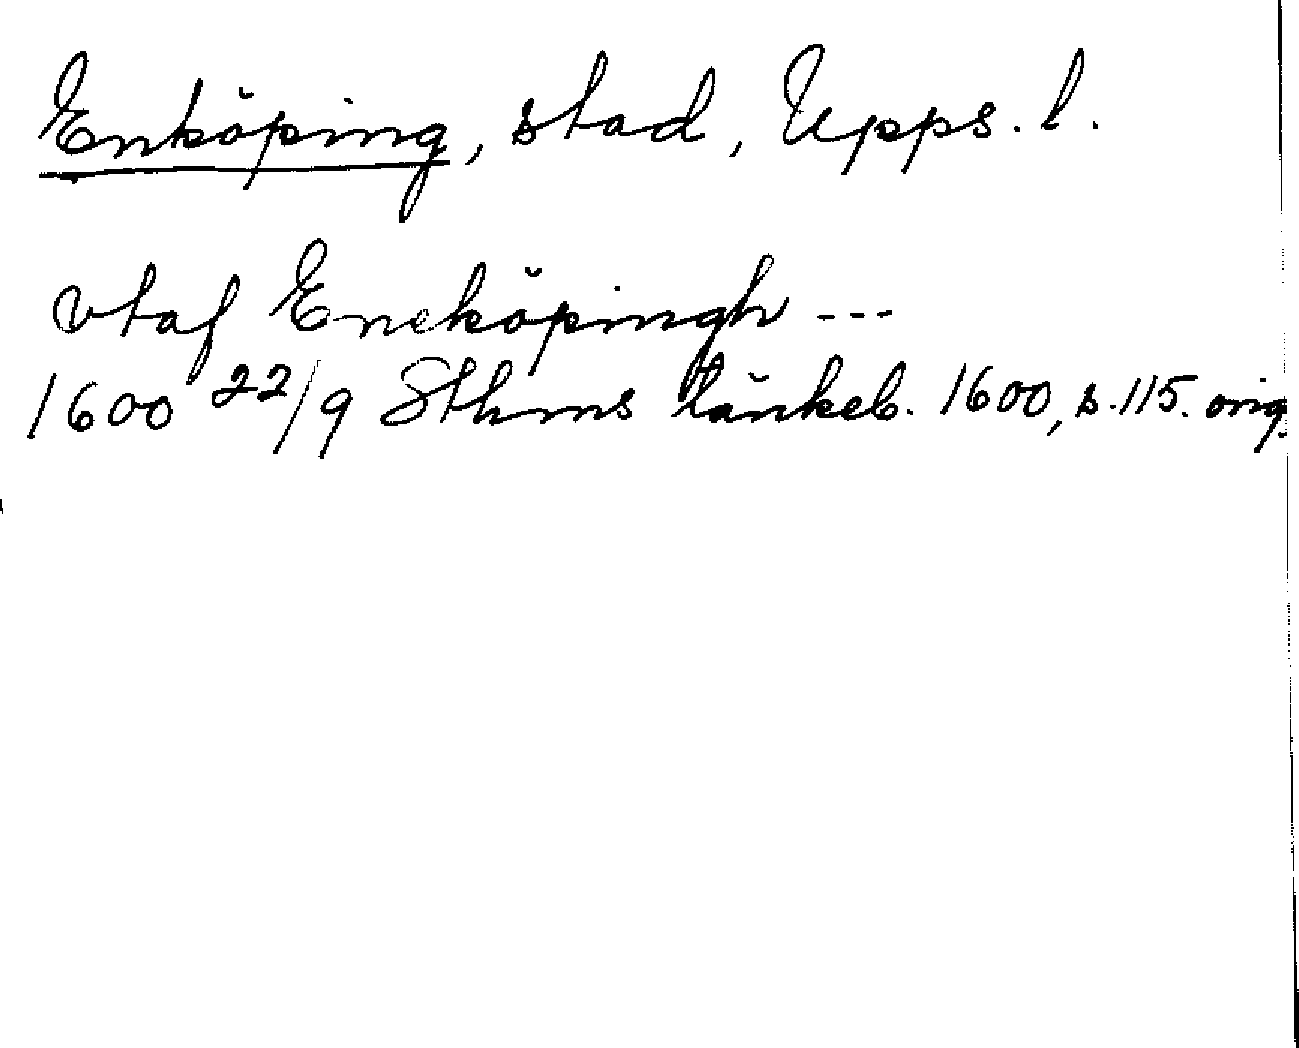 Enköping, stad, Upps. l.
vtaf Eneköpingh ---
1600 22/9 Sthms tänkeb. 1600, s. 115. orig.